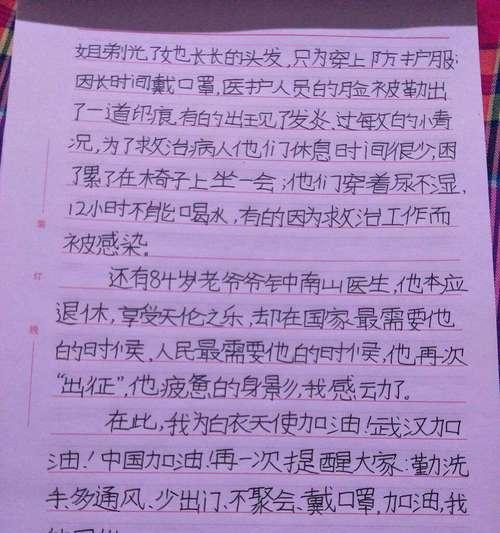 姐剃光了她长长的头发，只为穿上防护服；
因长时间戴口罩，医护人员的脸被勒出
了一道印痕，有的出现了发炎、过敏的情
况，为了救治病人他们休息时间很少，困
了累了在椅子上坐一会；他们穿着尿不湿，
12小时不能喝水，有的因为救治工作而
被感染。
还有84岁老爷爷钟南山医生，他本应
退休，享受天伦之乐，却在国家最需要他
的时候、人民最需要他的时候，他再一次
“出征”，他疲惫的身影，我感动了。
在此，我为白衣天使加油！武汉加
油！中国加油！再一次提醒大家：勤洗
手、多通风、少出门、不聚会、戴口罩，加油，我